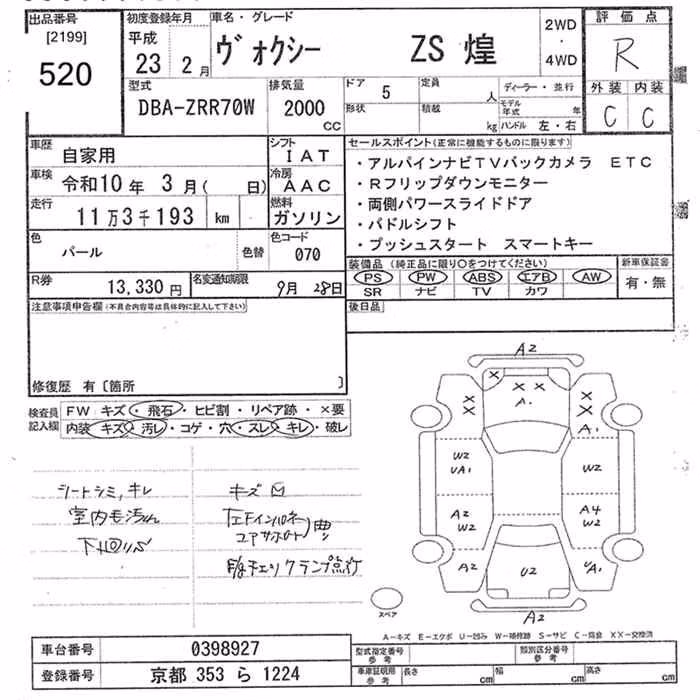 出品番号
[2199]
520
初度登録年月
平成
23 2月
車名・グレード
ヴォクシー ZS 煌
2WD
・
4WD
評価点
R
外装 内装
C C
型式
DBA-ZRR70W
排気量
2000
CC
ドア 5
形状
定員 人
積載 kg
ディーラー・並行
モデル年式 年
ハンドル 左・右
車歴 自家用
車検 令和10年 3月( 日)
走行 11万3千193 km
シフト IAT
冷房 AAC
燃料 ガソリン
色 パール 色替
色コード 070
R券 13,330円
名変通知期限 9月 28日
セールスポイント(正常に機能するものに限ります)
・アルパインナビTVバックカメラ ETC
・Rフリップダウンモニター
・両側パワースライドドア
・パドルシフト
・プッシュスタート スマートキー
装備品 (純正品に限り○をつけてください)
PS PW ABS エアB AW
SR ナビ TV カワ
新車保証書
有・無
後日品
注意事項申告欄(不具合内容等は具体的に記入して下さい)
修復歴 有〔箇所 〕
検査員記入欄
FW キズ・飛石・ヒビ割・リペア跡・×要
内装 キズ・汚レ・コゲ・穴・スレ・キレ・破レ
シートシミ,キレ
室内毛汚れ
下回りサビ
キズ凹
左Fインパネ
コアサポート 曲
エンジンチェックランプ点灯
A2
× × A1
×
×
×
×
A1
W2
UA1
W2
A2
W2
A4
W2
A2
U2
UA1
A2
スペア
A-キズ E-エクボ U-凹み W-補修跡 S-サビ C-腐食 XX-交換済
車台番号 0398927
登録番号 京都 353 ら 1224
型式指定番号
参考
類別区分番号
参考
車庫証明用
参考
長さ cm
幅 cm
高さ cm